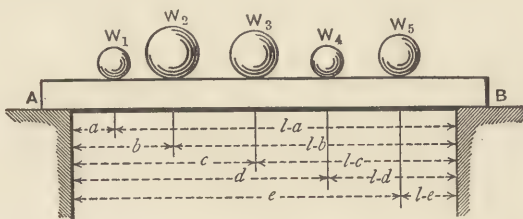 W1 W2 W3 W4 W5
A B
a l-a
b l-b
c l-c
d l-d
e l-e